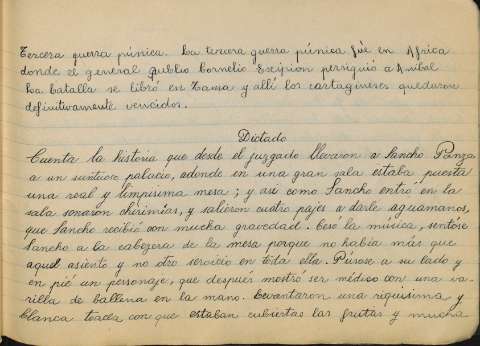 Tercera guerra púnica. La tercera guerra púnica fué en Africa
donde el general Publio Cornelio Escipion persiguió a Anibal
La batalla se libró en Zama y allí los cartagineses quedaron
definitivamente vencidos.
Dictado
Cuenta la historia que desde el juzgado llevaron a Sancho Panza
a un suntuoso palacio, adonde en una gran sala estaba puesta
una real y limpisima mesa; y así como Sancho entró en la
sala sonaron chirimías, y salieron cuatro pajes a darle aguamanos,
que Sancho recibió con mucha gravedad. Cesó la música, sentóse
Sancho a la cabecera de la mesa porque no había más que
aquel asiento y no otro servicio en toda ella. Púsose a su lado y
en pié un personaje, que después mostró ser médico con una va-
rilla de ballena en la mano. Levantaron una riquisima y
blanca toalla con que estaban cubiertas las frutas y mucha